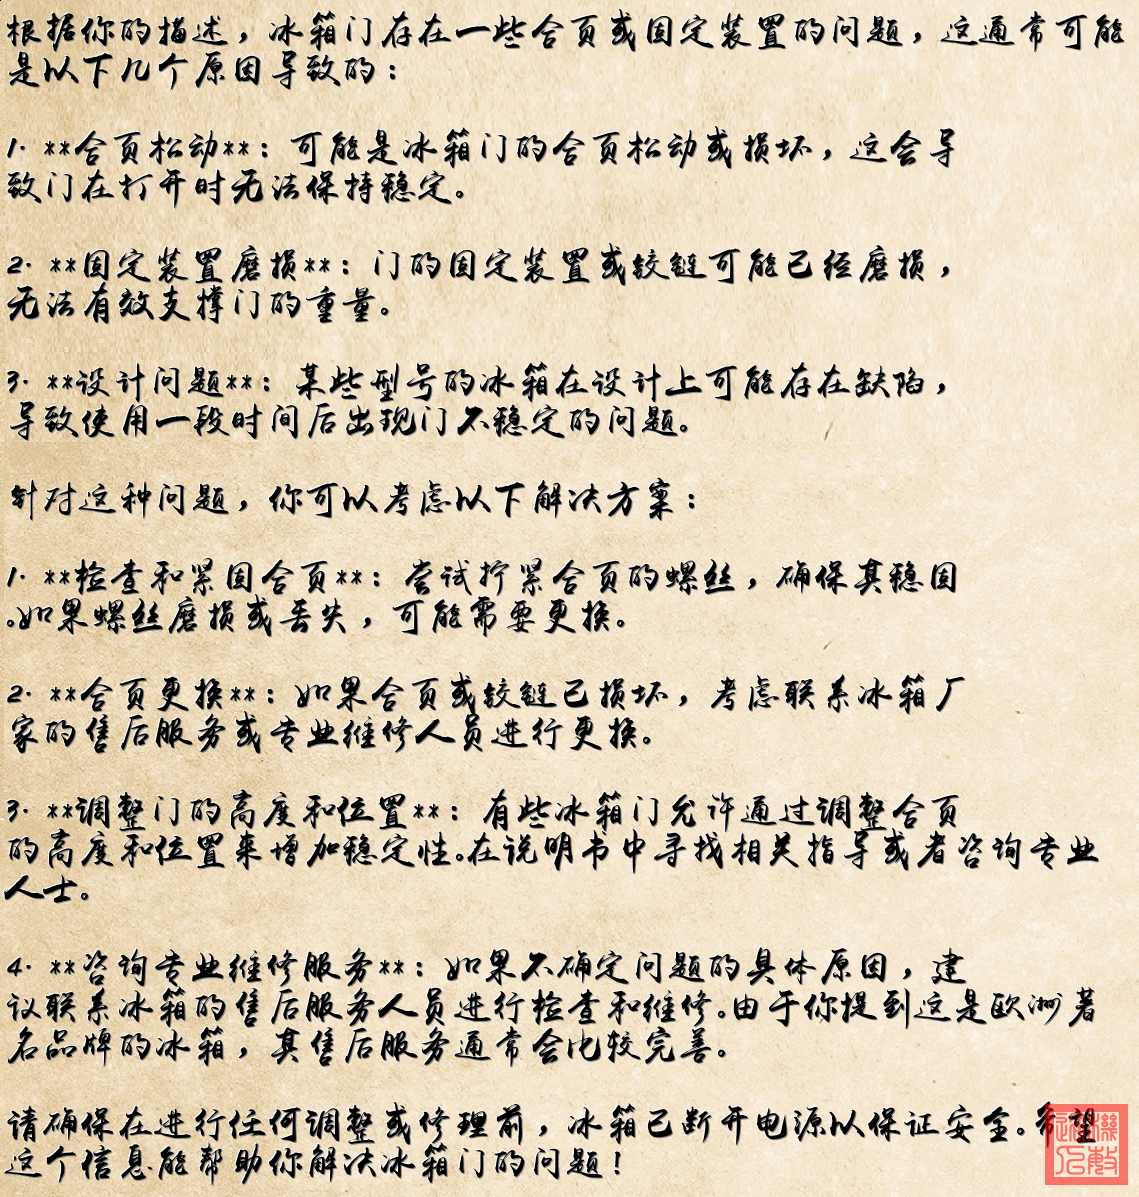 根据你的描述，冰箱门存在一些合页或固定装置的问题，这通常可能
是以下几个原因导致的：
1. **合页松动**：可能是冰箱门的合页松动或损坏，这会导
致门在打开时无法保持稳定。
2. **固定装置磨损**：门的固定装置或铰链可能已经磨损，
无法有效支撑门的重量。
3. **设计问题**：某些型号的冰箱在设计上可能存在缺陷，
导致使用一段时间后出现门不稳定的问题。
针对这种问题，你可以考虑以下解决方案：
1. **检查和紧固合页**：尝试拧紧合页的螺丝，确保其稳固
。如果螺丝磨损或丢失，可能需要更换。
2. **合页更换**：如果合页或铰链已损坏，考虑联系冰箱厂
家的售后服务或专业维修人员进行更换。
3. **调整门的高度和位置**：有些冰箱门允许通过调整合页
的高度和位置来增加稳定性。在说明书中寻找相关指导或者咨询专业
人士。
4. **咨询专业维修服务**：如果不确定问题的具体原因，建
议联系冰箱的售后服务人员进行检查和维修。由于你提到这是欧洲著
名品牌的冰箱，其售后服务通常会比较完善。
请确保在进行任何调整或修理前，冰箱已断开电源以保证安全。希望
这个信息能帮助你解决冰箱门的问题！